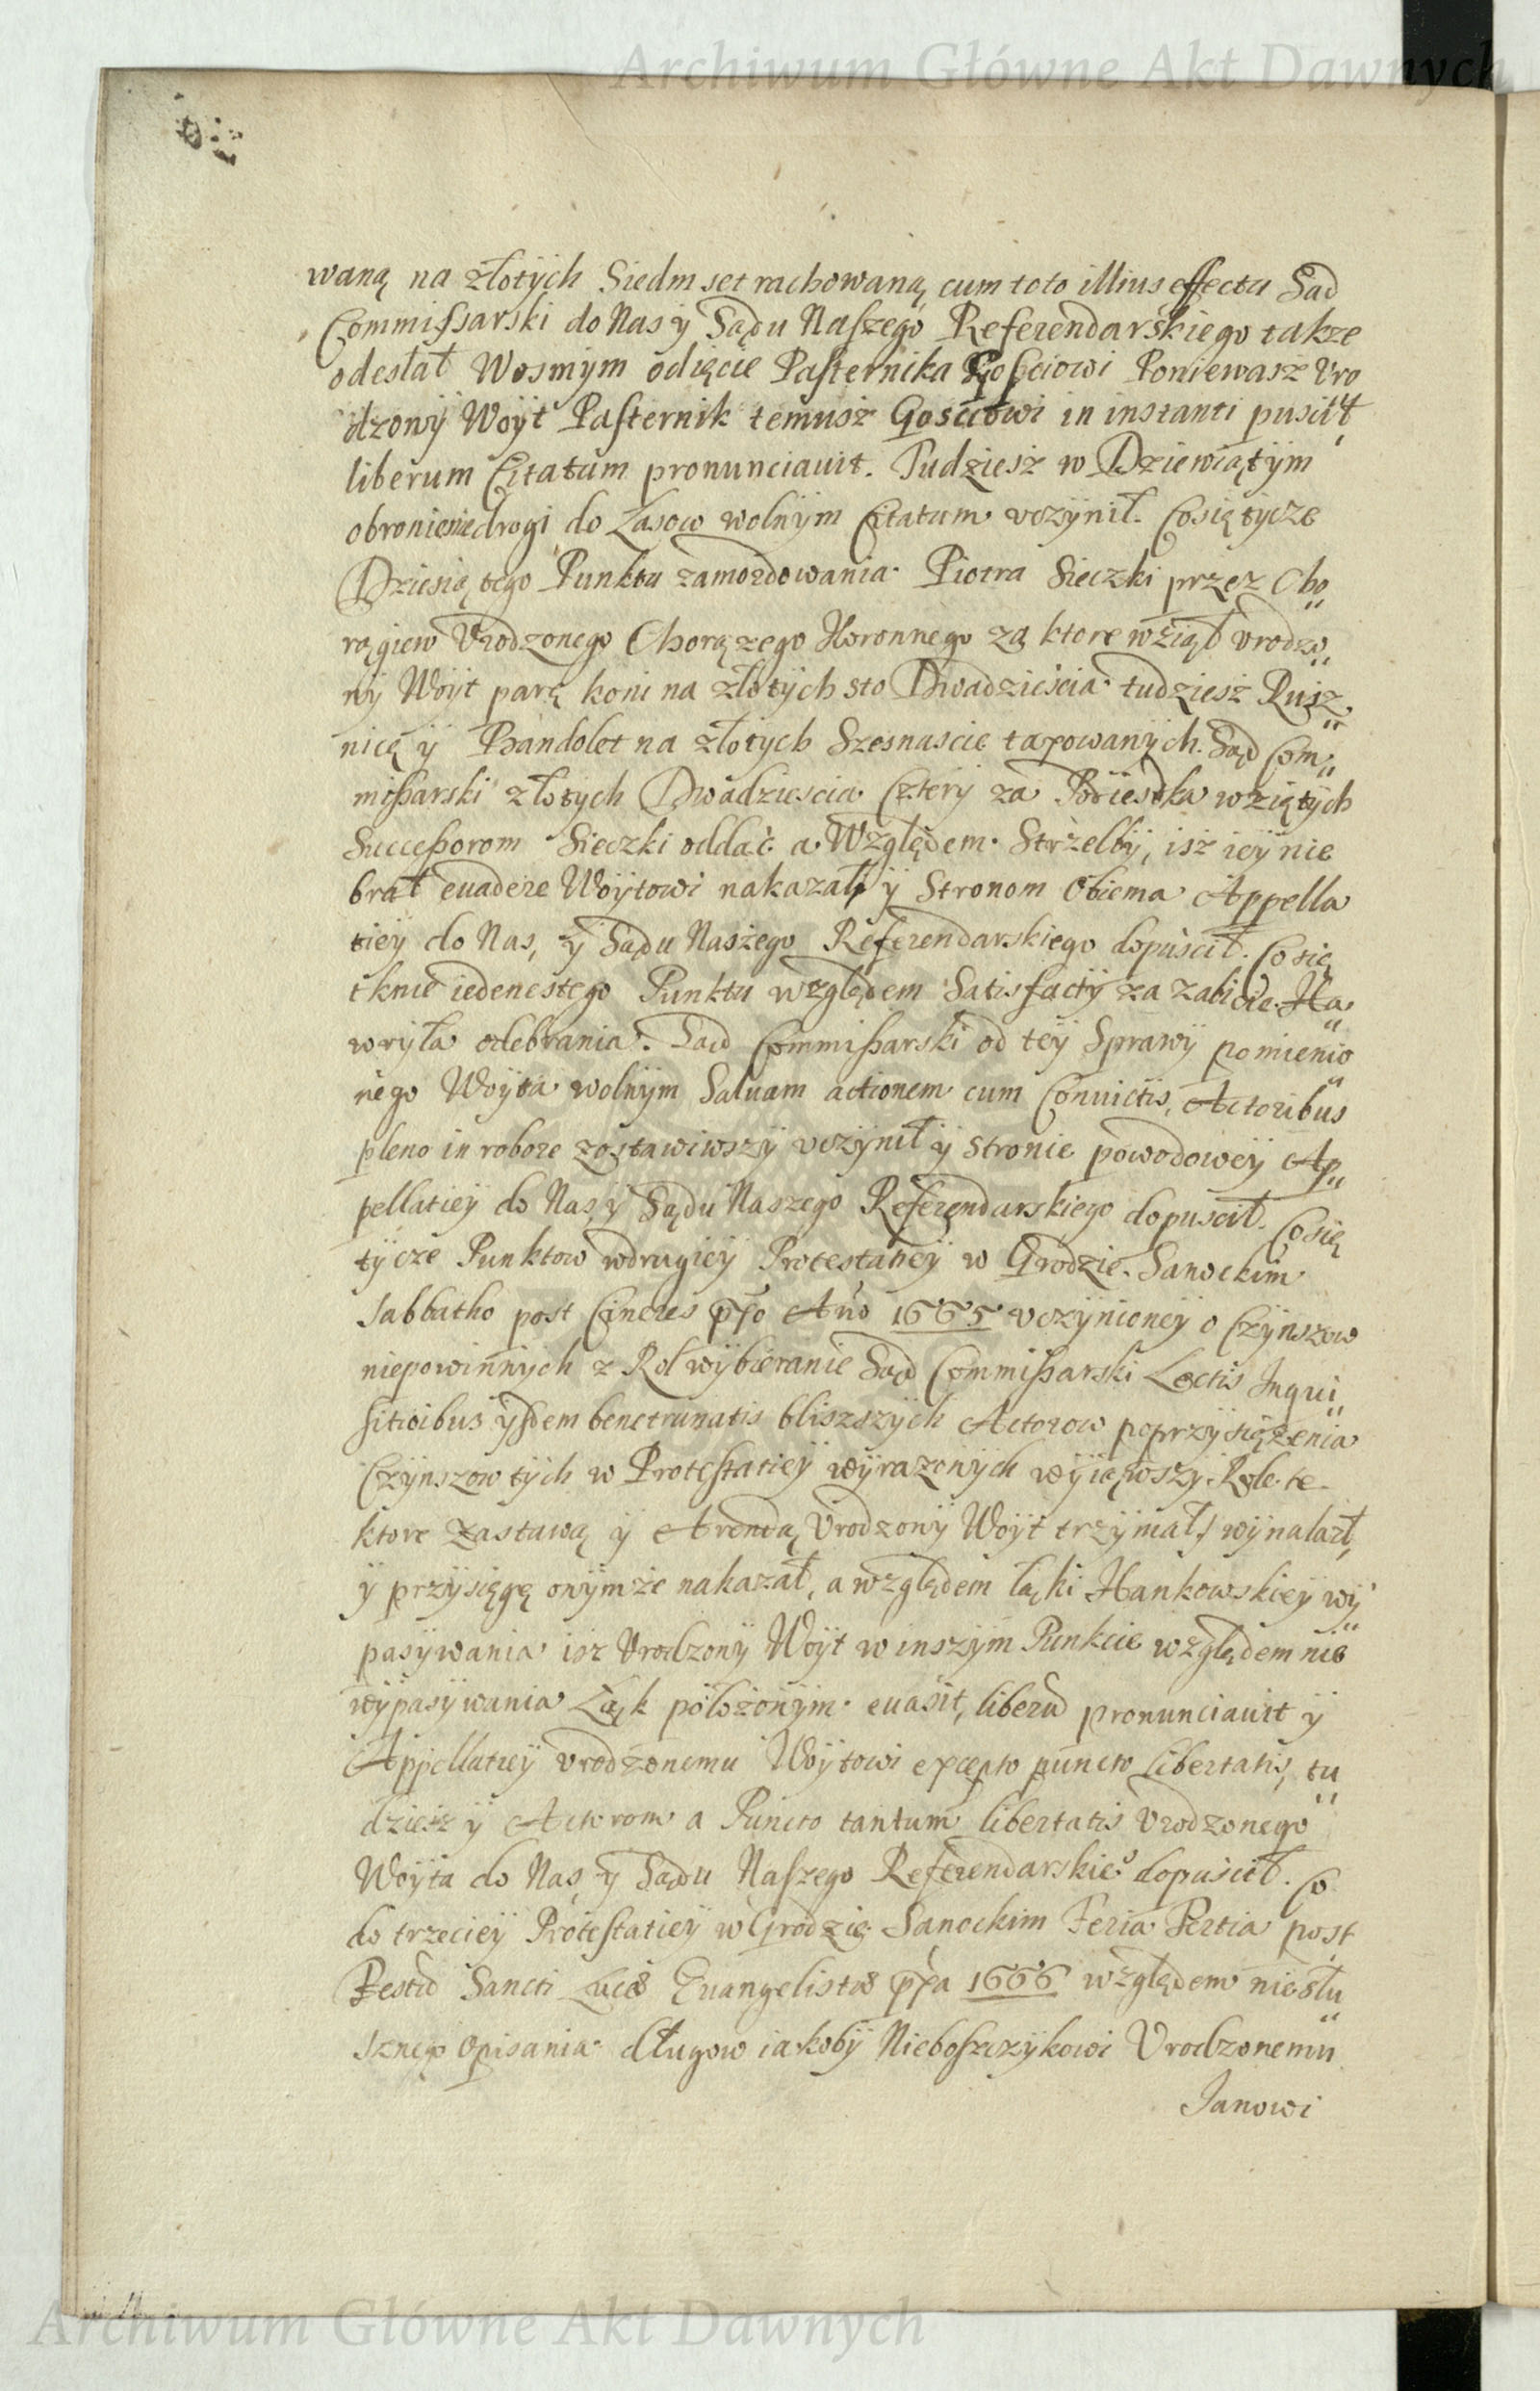 Archiwum Główne Akt Dawnych
waną na złotÿch Siedm set rachowaną, cum toto illius effectu Sąd
Commissarski do Nas ÿ Sądu Naszego Referendarskiego takze
odesłał Wosmÿm odięcie Pasternika Gosciowi Poniewasz Vro
dzonÿ Woÿt Pasternik temusz Gosciowi in instanti puscił
liberum Citatum pronunciauit. Tudziesz w Dziewiątÿm
obronienie drogi do Lasow wolnÿm Citatum vczÿnił. Co się tÿcze
Dziesiątego Punktu zamordowania Piotra Sieczki przez Cho„
rągiew Vrodzonego Chorązego Koronnego za ktore wźiął vrodzo„
nÿ Woÿt parę koni na złotÿch sto Dwadzieścia tudziesz Rusz„
nicę ÿ Bandolet na złotÿch Szesnascie taxowanÿch. Sąd Com„
missarski złotÿch Dwadziescia Czterÿ za wziętÿch
Successorom Sieczki oddać a Względem Strzelbÿ, isz ieÿ nie
brał euadere Woÿtowi nakazał, ÿ Stronom Obiema Appella
tieÿ do Nas, ÿ Sądu Naszego Referendarskiego dopuscił. Co się
tknie iedenestego Punktu względem Satisfactÿ za zabicie Ha„
wrÿła odebrania. Sąd Commissarski od teÿ Sprawÿ pomienio„
nego Woÿta wolnÿm Saluam actionem cum Conuictis, Actoribus
pleno in robore zostawiwszÿ vczÿnił ÿ stronie powodoweÿ Ap„
pellatieÿ do Nas ÿ Sądu Naszego Referendarskiego dopuscił. Co się
tÿcze Punktow wdrugieÿ Protestatieÿ w Grodzie Sanockim
Sabbatho post Cineres pxo Año 1665 vczÿnioneÿ o Czÿnszow
niepowinnÿch z Rol wÿbieranie Sąd Commissarski Lectis Inqui„
sitioibus ÿsdem bene trutinatis bliszszÿch Actorow poprzÿsiężenia
Czÿnszow tÿch w Protestatieÿ wÿrazonÿch wÿiąwszÿ Role te
ktore Zastawą ÿ Arendą Vrodzonÿ Woÿt trzÿmał, wÿnalazł,
ÿ przÿsięgę onÿmże nakazał, a względem łąki Hankowskieÿ wÿ„
pasÿwania isz Vrodzonÿ Woÿt w inszÿm Punkcie względem nie
wÿpasÿwania Łąk położonÿm euasit, liberũ pronunciauit ÿ
Appellatieÿ vrodzonemu Woÿtowi excepto puncto libertatis, tu„
dziesz ÿ Actorom a Puncto tantum libertatis Vrodzonego
Woÿta do Nas ÿ Sądu Naszego Referendarskieº dopuscił. Co
do trzecieÿ Protestatieÿ w Grodzie Sanockim Feria Tertia post
Festũ Sancti Lucæ Euangelistæ pxa 1666 względem niesłu„
sznego opisania długow iakobÿ Nieboszczÿkowi Vrodzonemu
Janowi
Archiwum Główne Akt Dawnych